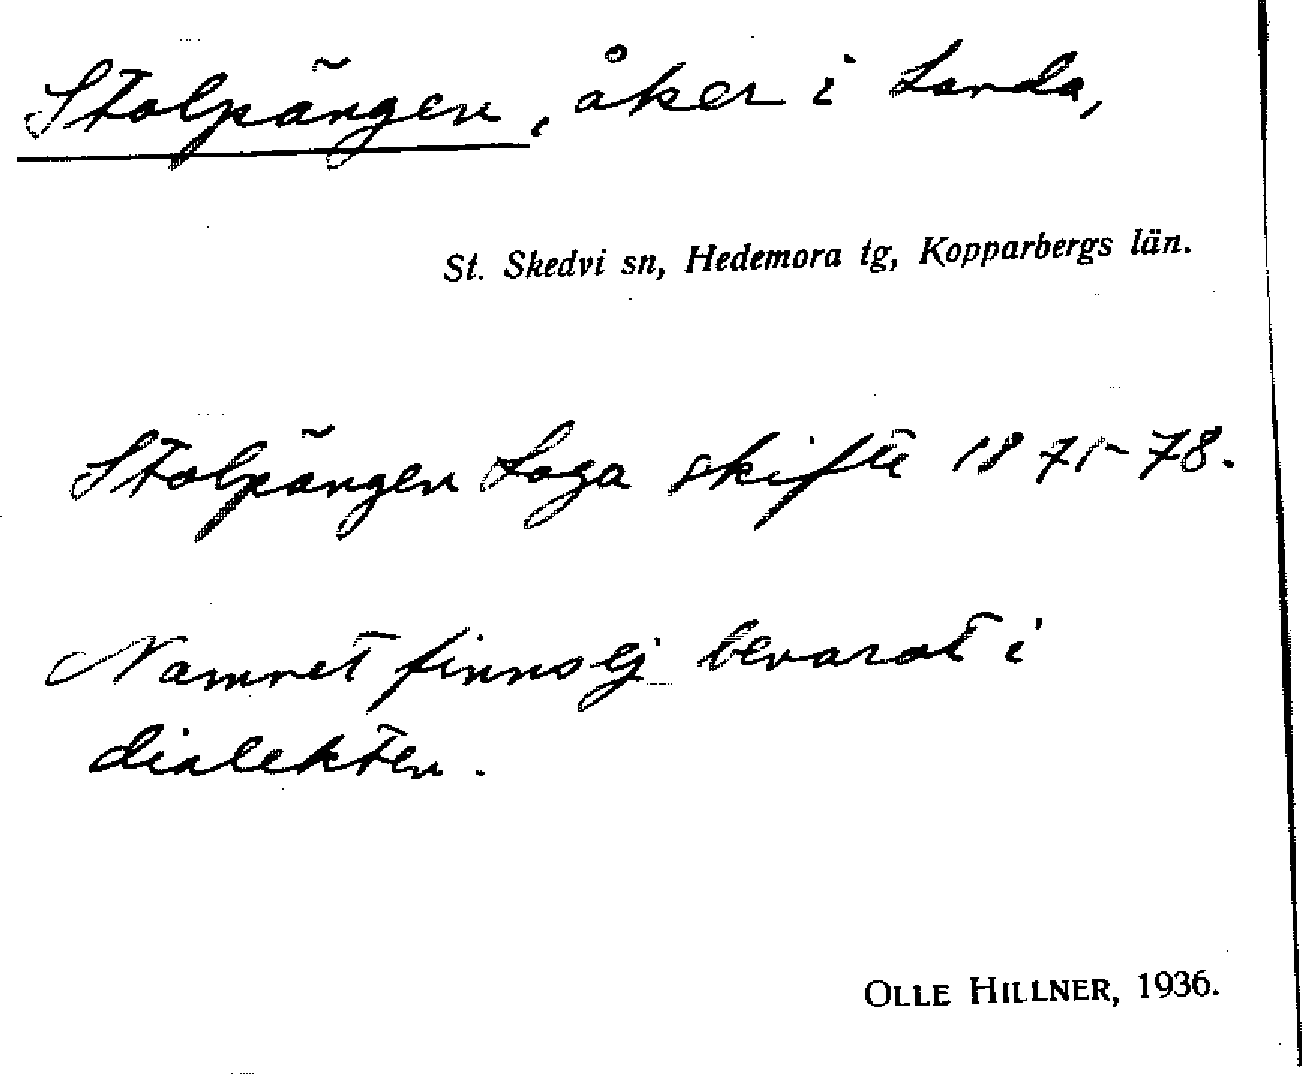 Stolpängen, åker i Landa,
St. Skedvi sn, Hedemora tg, Kopparbergs län.
Stolpängen Laga skifte 1875-78.
Namnet finns ej bevarat i
dialekten.
OLLE HILLNER, 1936.